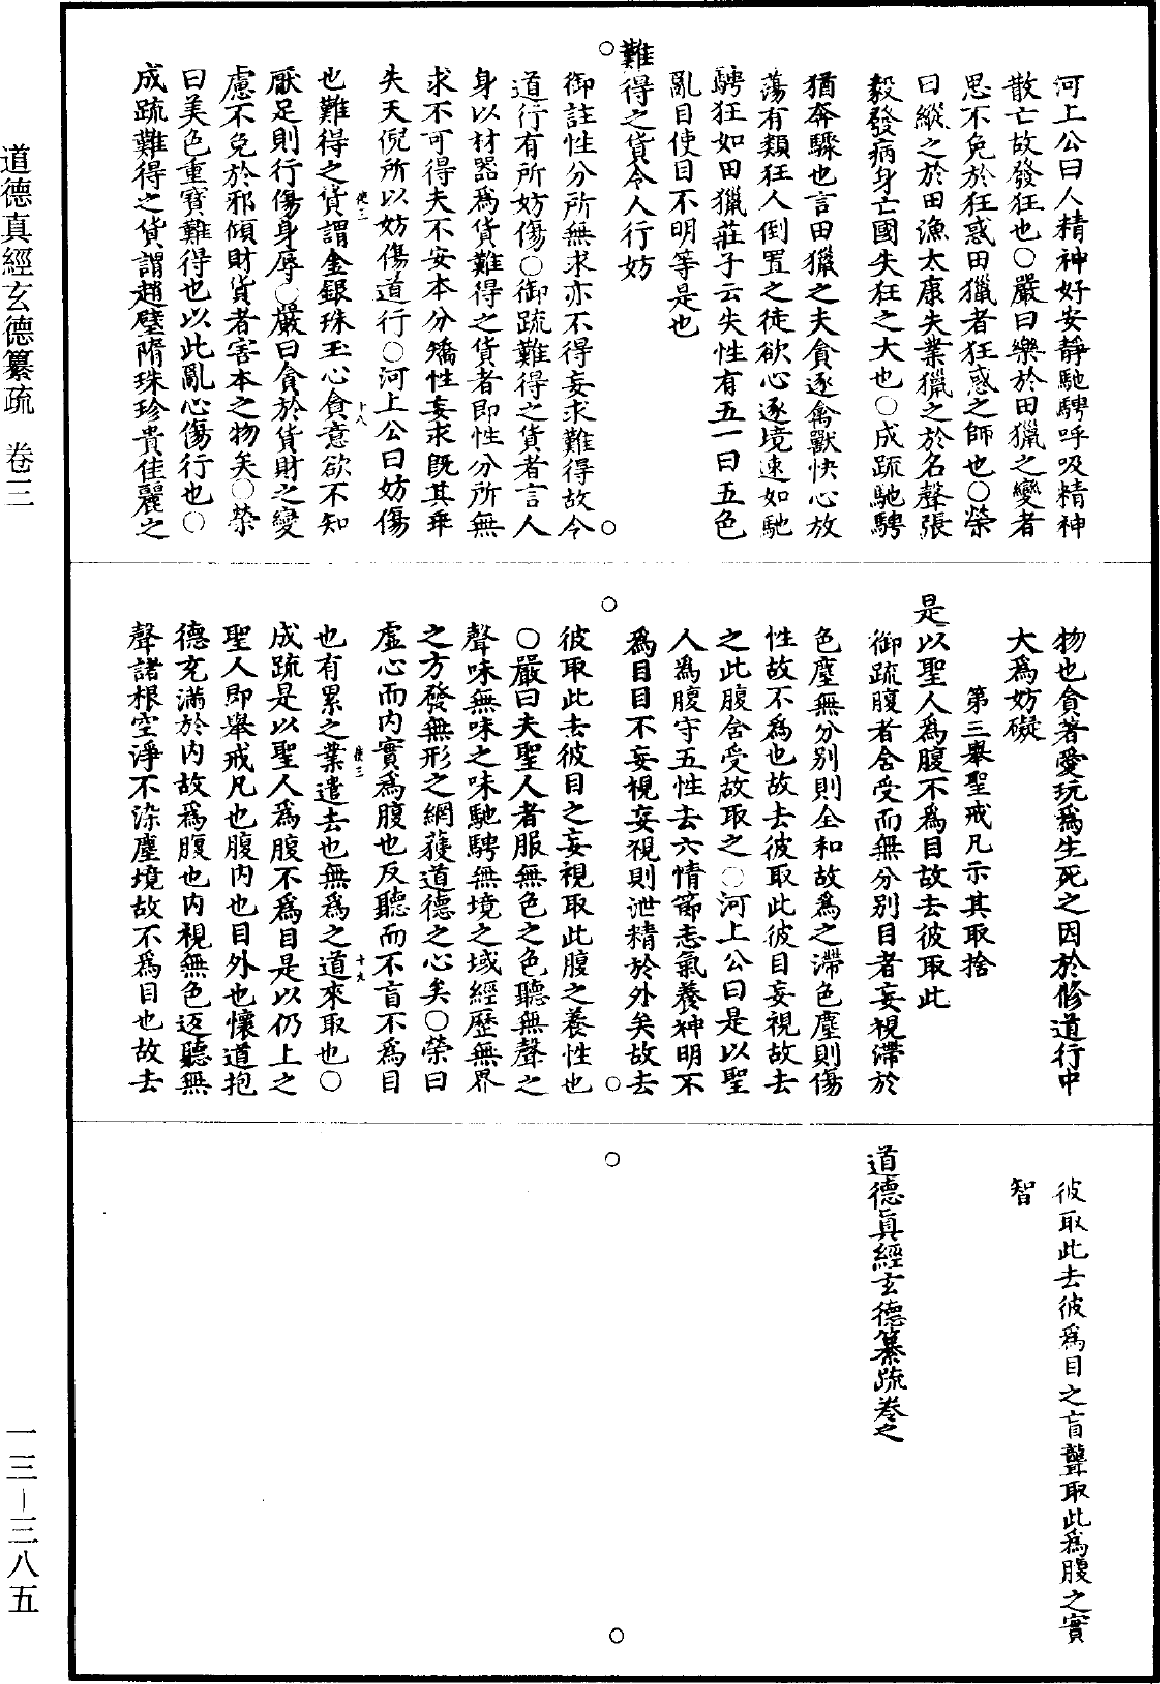 道德真經玄德纂疏　卷三
河上公曰人精神好安靜馳騁呼吸精神
散亡故發狂也○嚴曰樂於田獵之變者
思不免於狂惑田獵者狂惑之師也○榮
曰縱之於田漁太康失業獵之於名聲張
毅發病身亡國失狂之大也○成疏馳騁
猶奔驟也言田獵之夫貪逐禽獸快心放
蕩有類狂人倒置之徒欲心逐境速如馳
騁狂如田獵莊子云失性有五一曰五色
亂目使目不明等是也
難得之貨令人行妨
御註性分所無求亦不得妄求難得故令
道行有所妨傷○御疏難得之貨者言人
身以材器為貨難得之貨者即性分所無
求不可得夫不安本分矯性妄求既其乖
失天倪所以妨傷道行○河上公曰妨傷
也難得之貨謂金銀珠玉心貪意欲不知
使三　十八
厭足則行傷身辱○嚴曰貪於貨財之變
慮不免於邪傾財貨者害本之物矣○榮
曰美色重寶難得也以此亂心傷行也○
成疏難得之貨謂趙璧隋珠珍貴佳麗之
物也貪著愛玩為生死之因於修道行中
大為妨礙
第三舉聖戒凡示其取捨
是以聖人為腹不為目故去彼取此
御疏腹者含受而無分別目者妄視滯於
色塵無分別則全和故為之滯色塵則傷
性故不為也故去彼取此彼目妄視故去
之此腹含受故取之○河上公曰是以聖
人為腹守五性去六情節志氣養神明不
為目目不妄視妄視則泄精於外矣故去
彼取此去彼目之妄視取此腹之養性也
○嚴曰夫聖人者服無色之色聽無聲之
聲味無味之味馳騁無境之域經歷無界
之方發無形之網獲道德之心矣○榮曰
虛心而內實為腹也反聽而不盲不為目
也有累之業遣去也無為之道來取也○
使三　十九
成疏是以聖人為腹不為目是以仍上之
聖人即舉戒凡也腹內也目外也懷道抱
德充滿於內故為腹也內視無色返聽無
聲諸根空淨不染塵境故不為目也故去
彼取此去彼為目之盲聾取此為腹之實
智
道德真經玄德纂疏卷之
一三－三八五